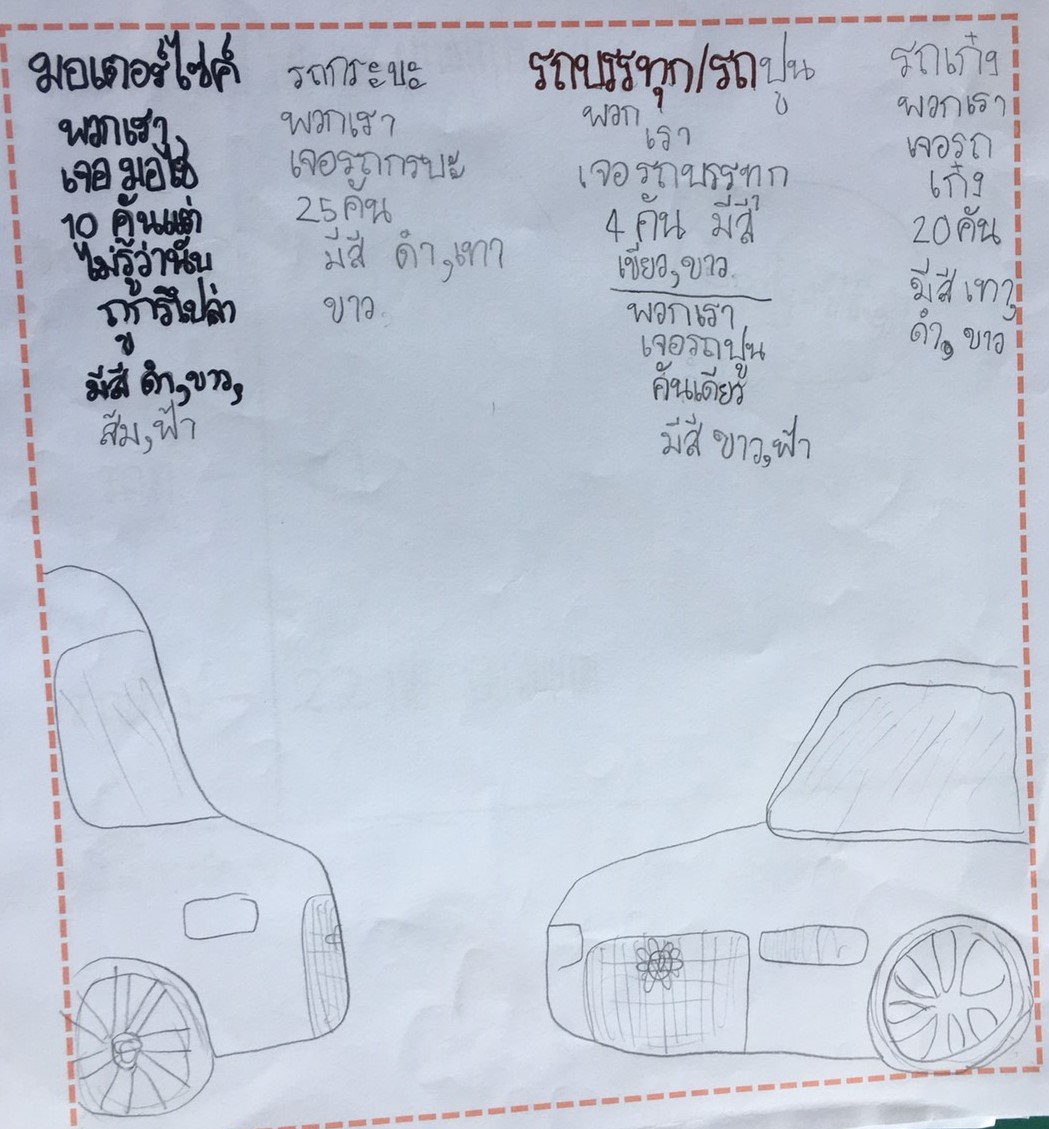 มอเตอร์ไซค์
พวกเรา
เจอ มอไซ
10 คันแต่
ไม่รู้ว่านับ
ถูกรึเปล่า
มีสี ดำ,ขาว,
ส้ม,ฟ้า
รถกระะบะ
พวกเรา
เจอรถกรบะ
25 คัน
มีสี ดำ,เทา
ขาว
รถบรรทุก/รถปูน
พวก
เรา
เจอรถบรรทุก
4 คัน มีสี
เขียว,ขาว
พวกเรา
เจอรถปูน
คันเดียว
มีสี ขาว,ฟ้า
รถเก๋ง
พวกเรา
เจอรถ
เก๋ง
20 คัน
มีสี เทา,
ดำ, ขาว